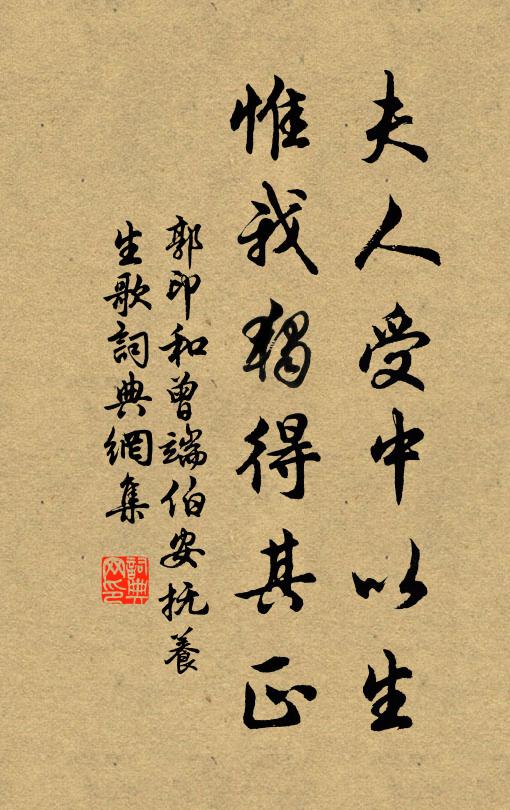 夫人受中以生
惟我獨得其正
郭印和曾端伯安抚養
生歌詞典網集
詞典
网印